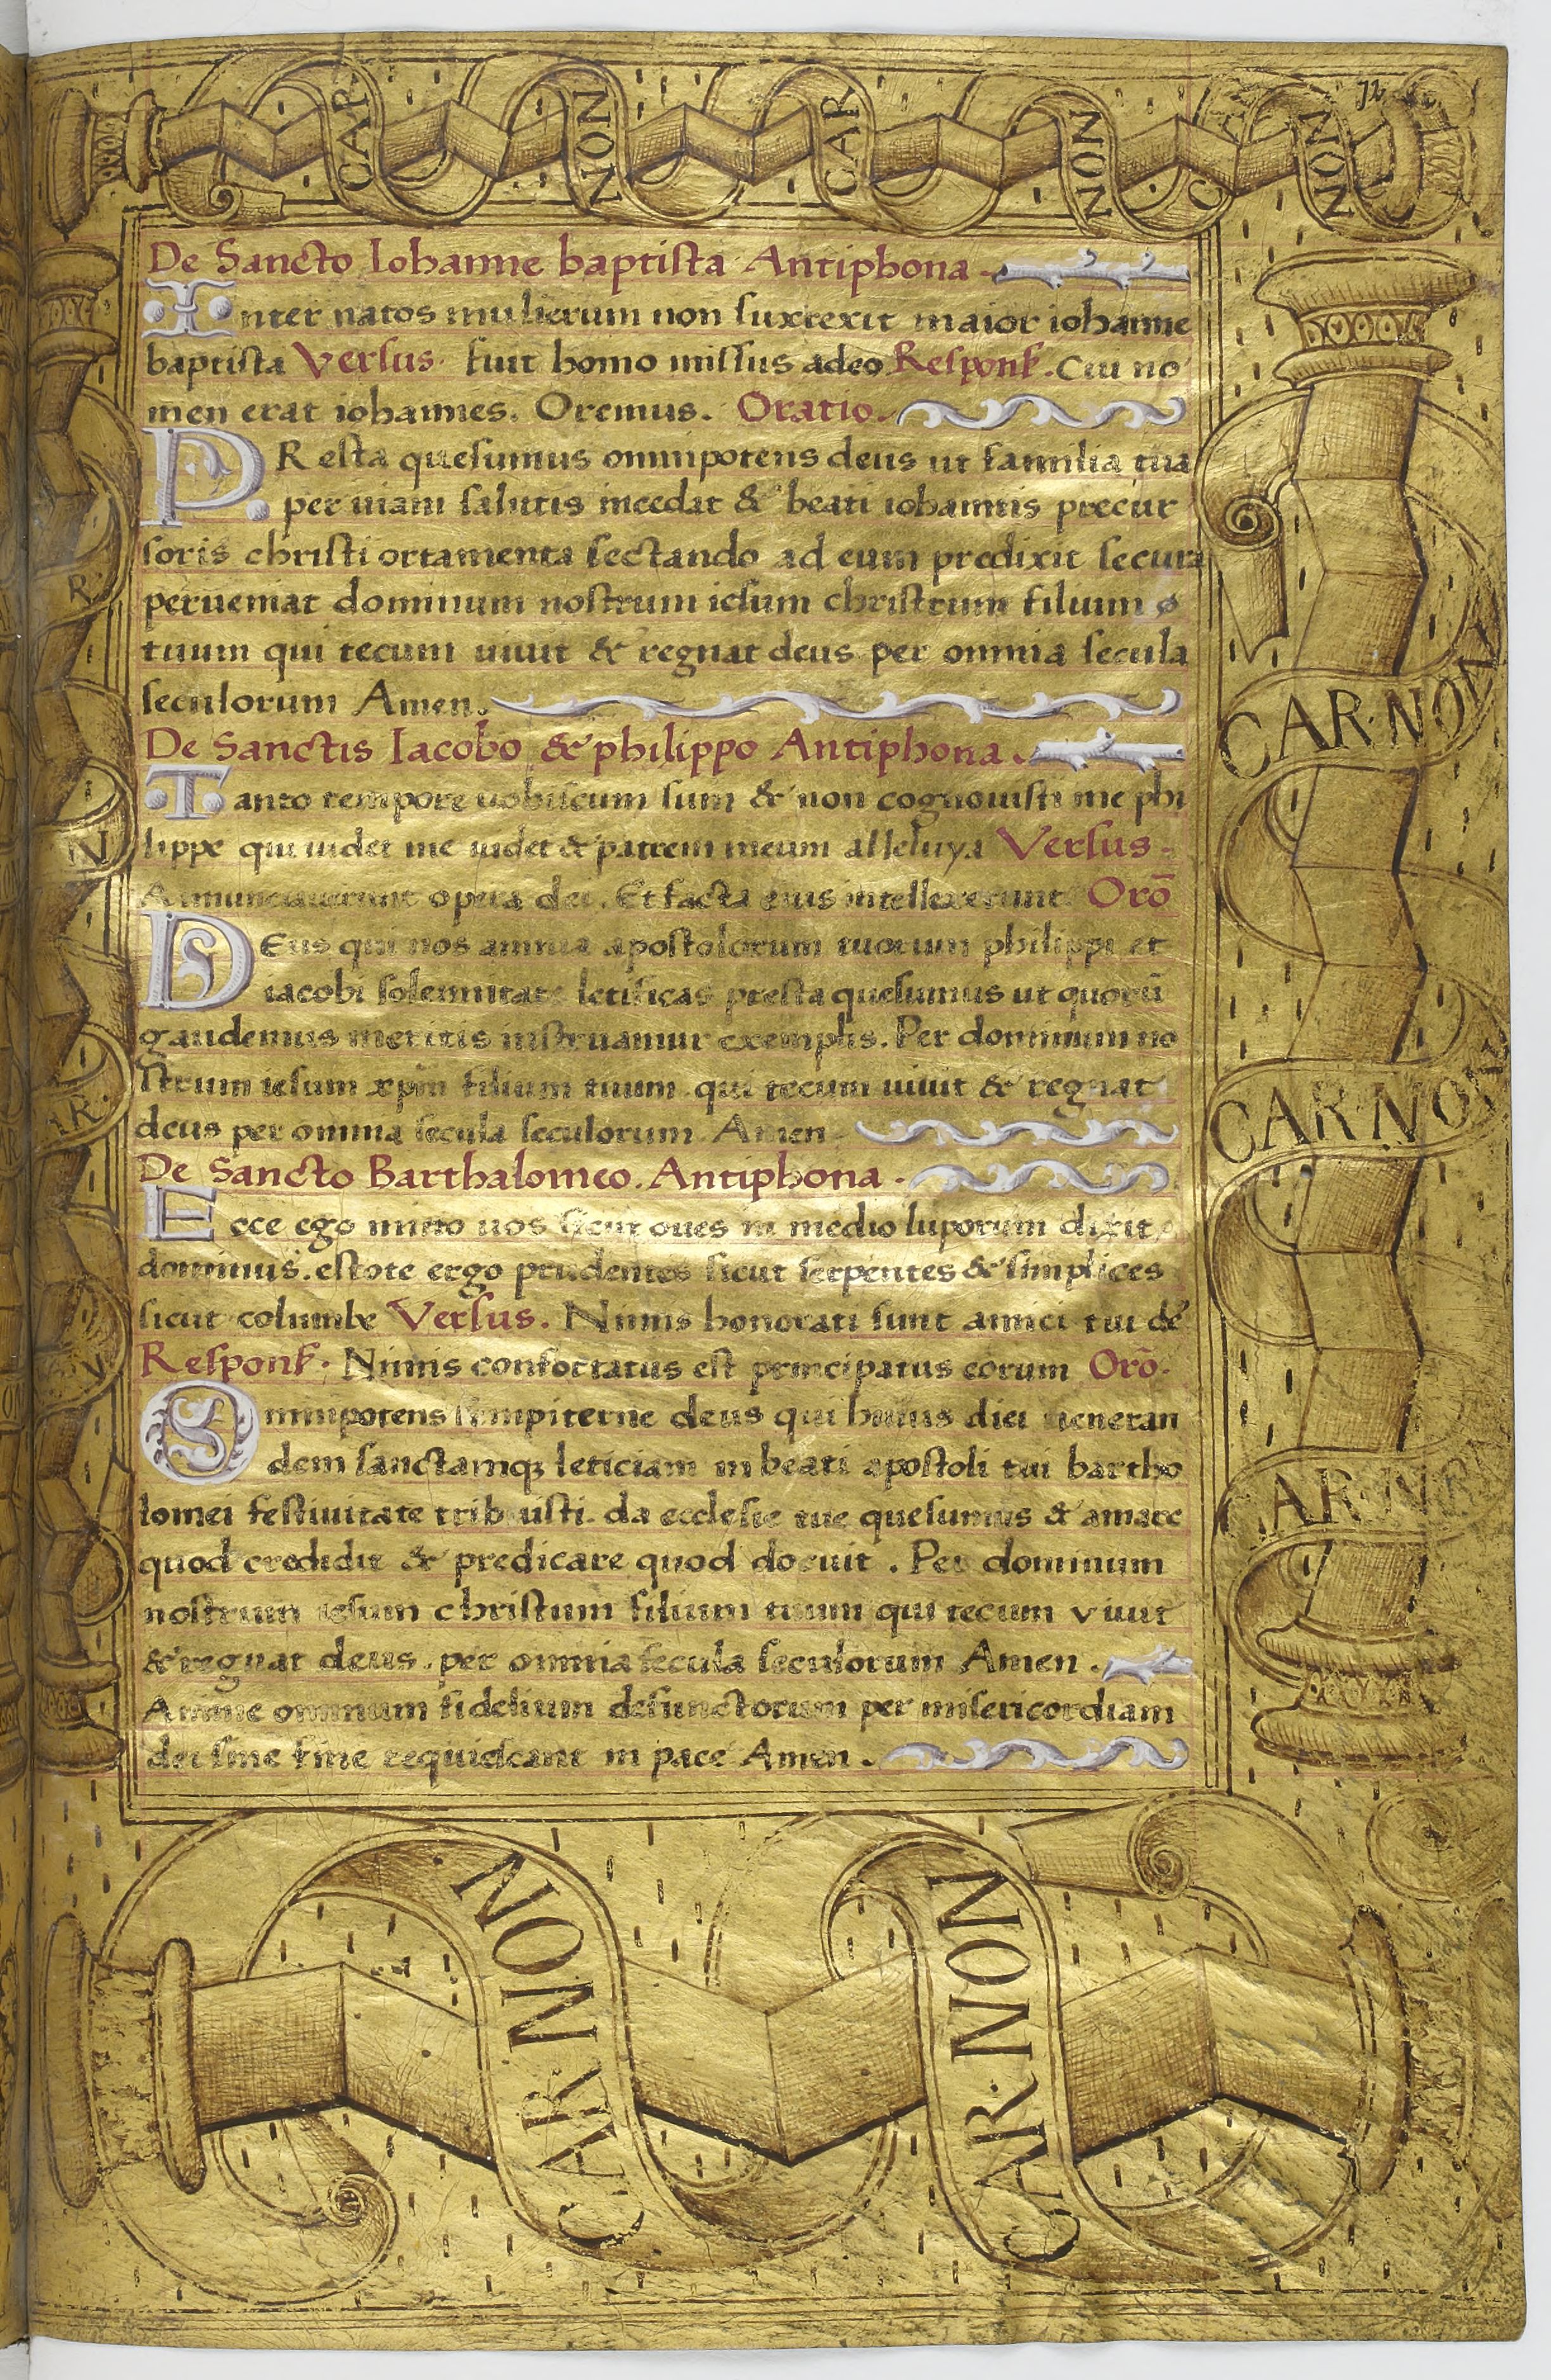 72
CAR NON CAR NON C NON
De Sancto Iohanne baptista Antiphona
Inter natos mulierum non surrexit maior iohanne
baptista Versus. Fuit homo missus adeo Respons. Cui no
men erat iohannes. Oremus. Oratio.
PResta quesumus omnipotens deus ut familia tua
per uiam salutis incedat & beati iohannis precur
soris christi ortamenta sectando ad eum predixit secura
perueniat dominum nostrum iesum christum filium
tuum qui tecum uiuit & regnat deus per omnia secula
seculorum Amen.
De Sanctis Iacobo & philippo Antiphona.
Tanto tempore uobiscum sum & non cognouisti me phi
lippe qui uidet me uidet & patrem meum alleluya Versus.
Annunciauerunt opera dei. Et facta eius intellexerunt Orō
DEus qui nos annua apostolorum tuorum philippi et
iacobi solemnitate letificas presta quesumus ut quorū
gaudemus meritis instruamur exemplis. Per dominum no
strum iesum xpm̄ filium tuum qui tecum uiuit & regnat
deus per omnia secula seculorum Amen
De Sancto Barthalomeo. Antiphona.
Ecce ego mitto uos sicut oues in medio luporum dixit
dominus. estote ergo prudentes sicut serpentes & simplices
sicut columbe Versus. Nimis honorati sunt amici tui de
Respons. Nimis confortatus est principatus eorum Orō.
Omnipotens sempiterne deus qui huius diei ueneran
dem sanctamqꝫ leticiam in beati apostoli tui bartho
lomei festiuitate tribuisti da ecclesie tue quesumus & amare
quod credidit & predicare quod docuit. Per dominum
nostrum iesum christum filium tuum qui tecum viuit
& regnat deus. per omnia secula seculorum Amen.
Anime omnium fidelium defunctorum per misericordiam
dei sine fine requiescant in pace Amen.
R
N
R
V
CAR·NON
CAR·NON
CAR·NON
CAR·NON